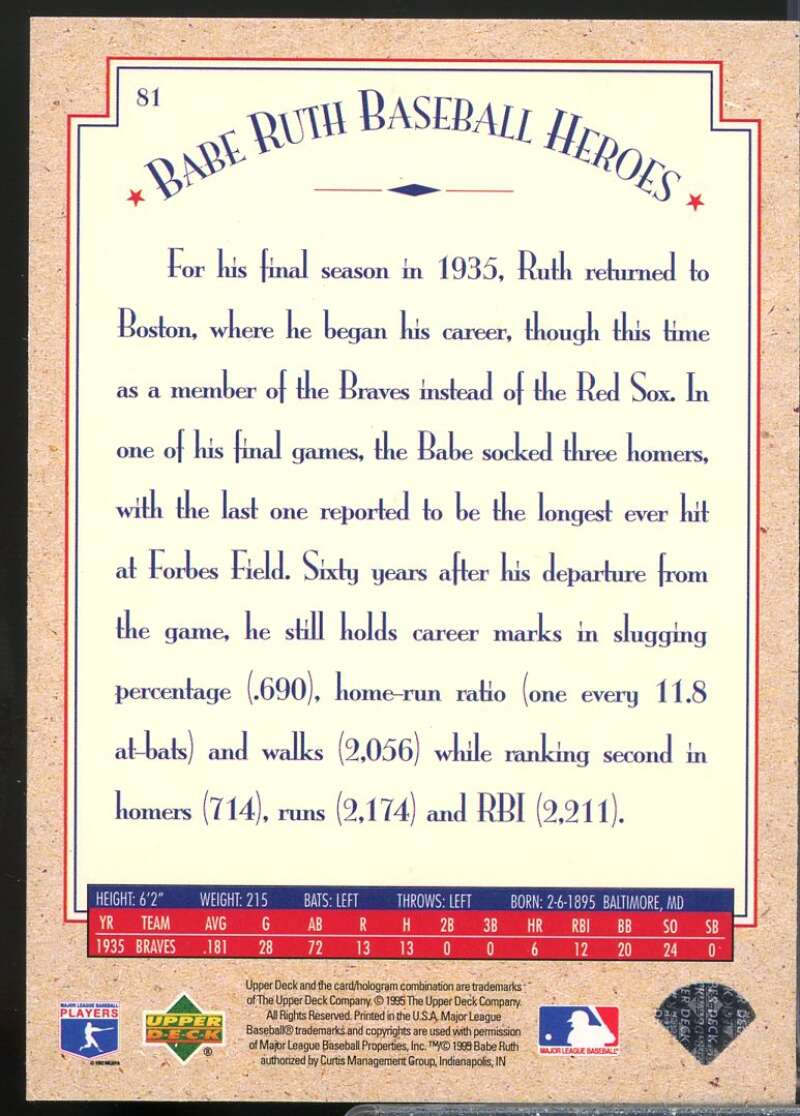 81
BABE RUTH BASEBALL HEROES
For his final season in 1935, Ruth returned to
Boston, where he began his career, though this time
as a member of the Braves instead of the Red Sox. In
one of his final games, the Babe socked three homers,
with the last one reported to be the longest ever hit
at Forbes Field. Sixty years after his departure from
the game, he still holds career marks in slugging
percentage (.690), home-run ratio (one every 11.8
at-bats) and walks (2,056) while ranking second in
homers (714), runs (2,174) and RBI (2,211).
HEIGHT: 6'2" WEIGHT: 215 BATS: LEFT THROWS: LEFT BORN: 2-6-1895 BALTIMORE, MD
YR TEAM AVG G AB R H 2B 3B HR RBI BB SO SB
1935 BRAVES .181 28 72 13 13 0 0 6 12 20 24 0
MAJOR LEAGUE BASEBALL
PLAYERS
UPPER
DECK
®
Upper Deck and the card/hologram combination are trademarks
of The Upper Deck Company. © 1995 The Upper Deck Company.
All Rights Reserved. Printed in the U.S.A. Major League
Baseball® trademarks and copyrights are used with permission
of Major League Baseball Properties, Inc. ™/© 1995 Babe Ruth
authorized by Curtis Management Group, Indianapolis, IN
MAJOR LEAGUE BASEBALL